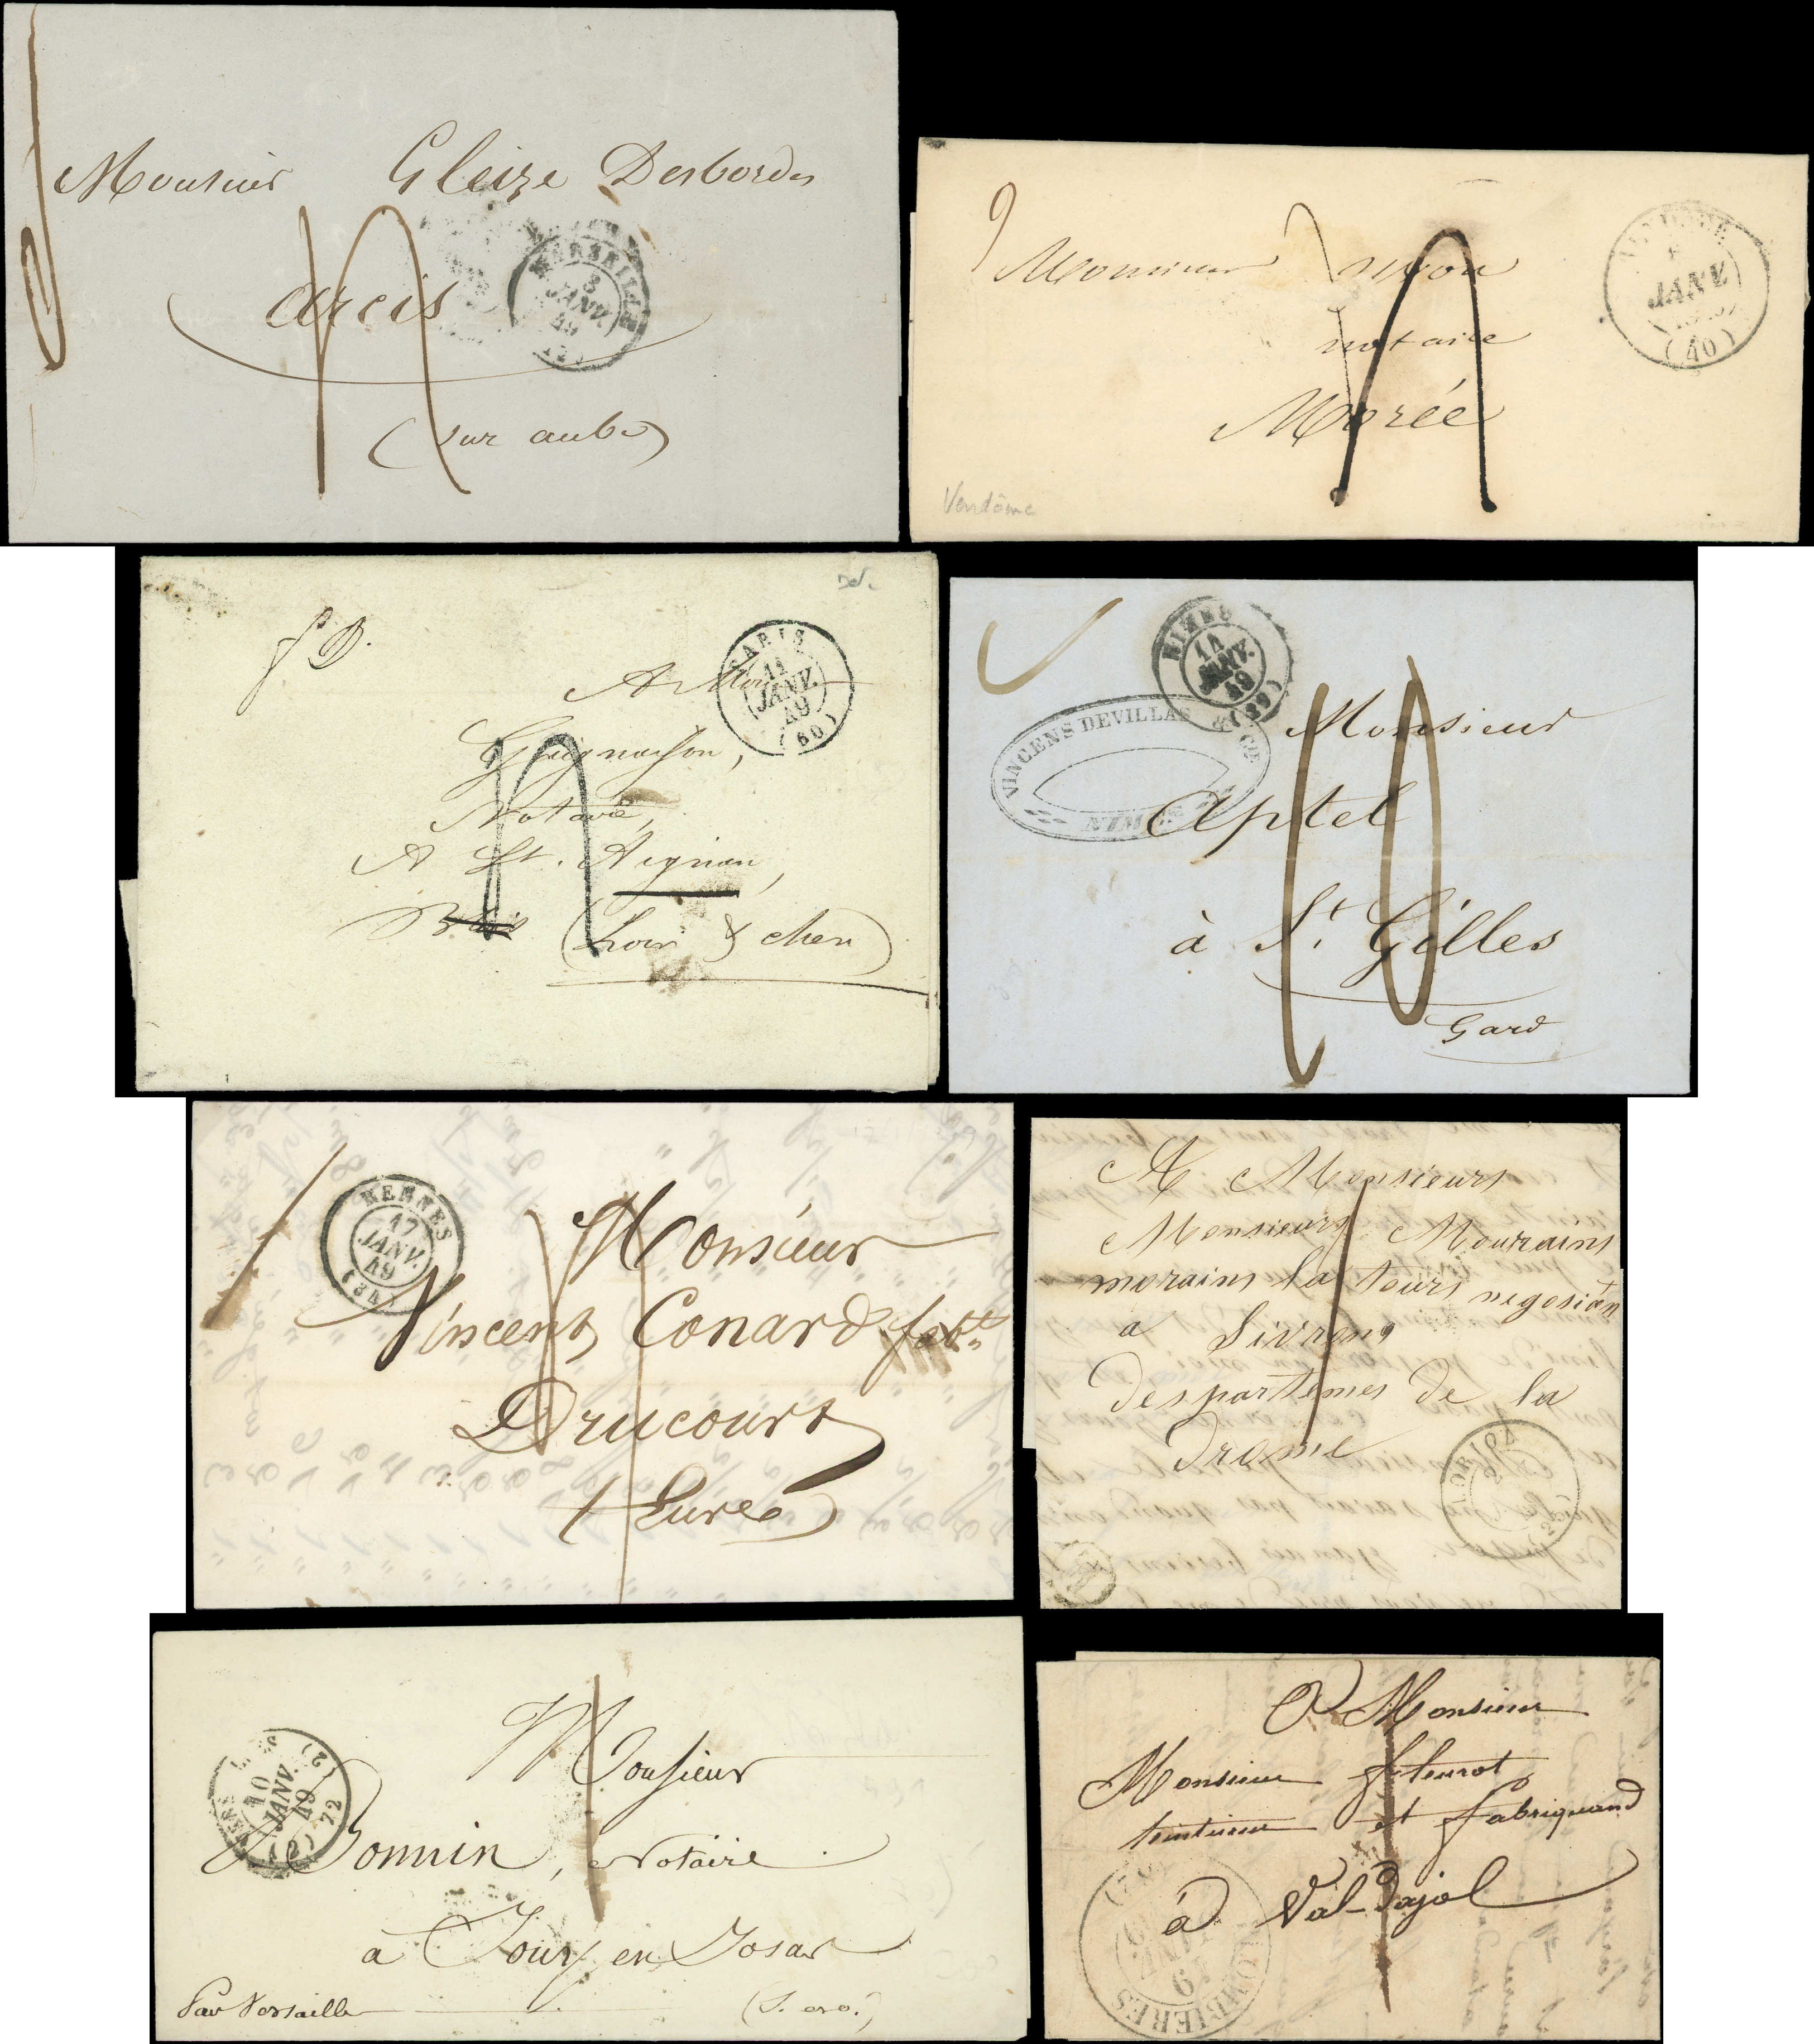 Monsieur Gleize Desbordes
arcis
(sur aube)
MARSEILLE
3
JANV.
49
9
Monsieur
notaire
Morée
JANV.
(40)
Vendôme
PARIS
11
JANV.
49
(60)
Notaire,
A St. Aignan,
(Loir & cher)
NIMES
14
JANV.
49
(29)
VINCENS DEVILLAS & CIE
NIMES
Monsieur
Aptel
à St. Gilles
Gard
RENNES
17
JANV.
49
(34)
Monsieur
Vincent Conard fabt.
Drucourt
Eure
A Messieurs
Messieurs Mourains
morains la tours negosian
a Livrons
despartemes de la
drome
LORIOL
2
(25)
10
JANV.
49
(72)
Monsieur
Bonnin, Notaire
à Jouy en Josas
Par Versailles
(S. & O.)
A Monsieur
Monsieur fleurot
teinturier et fabriquand
à Val-Dajol
PLOMBIERES